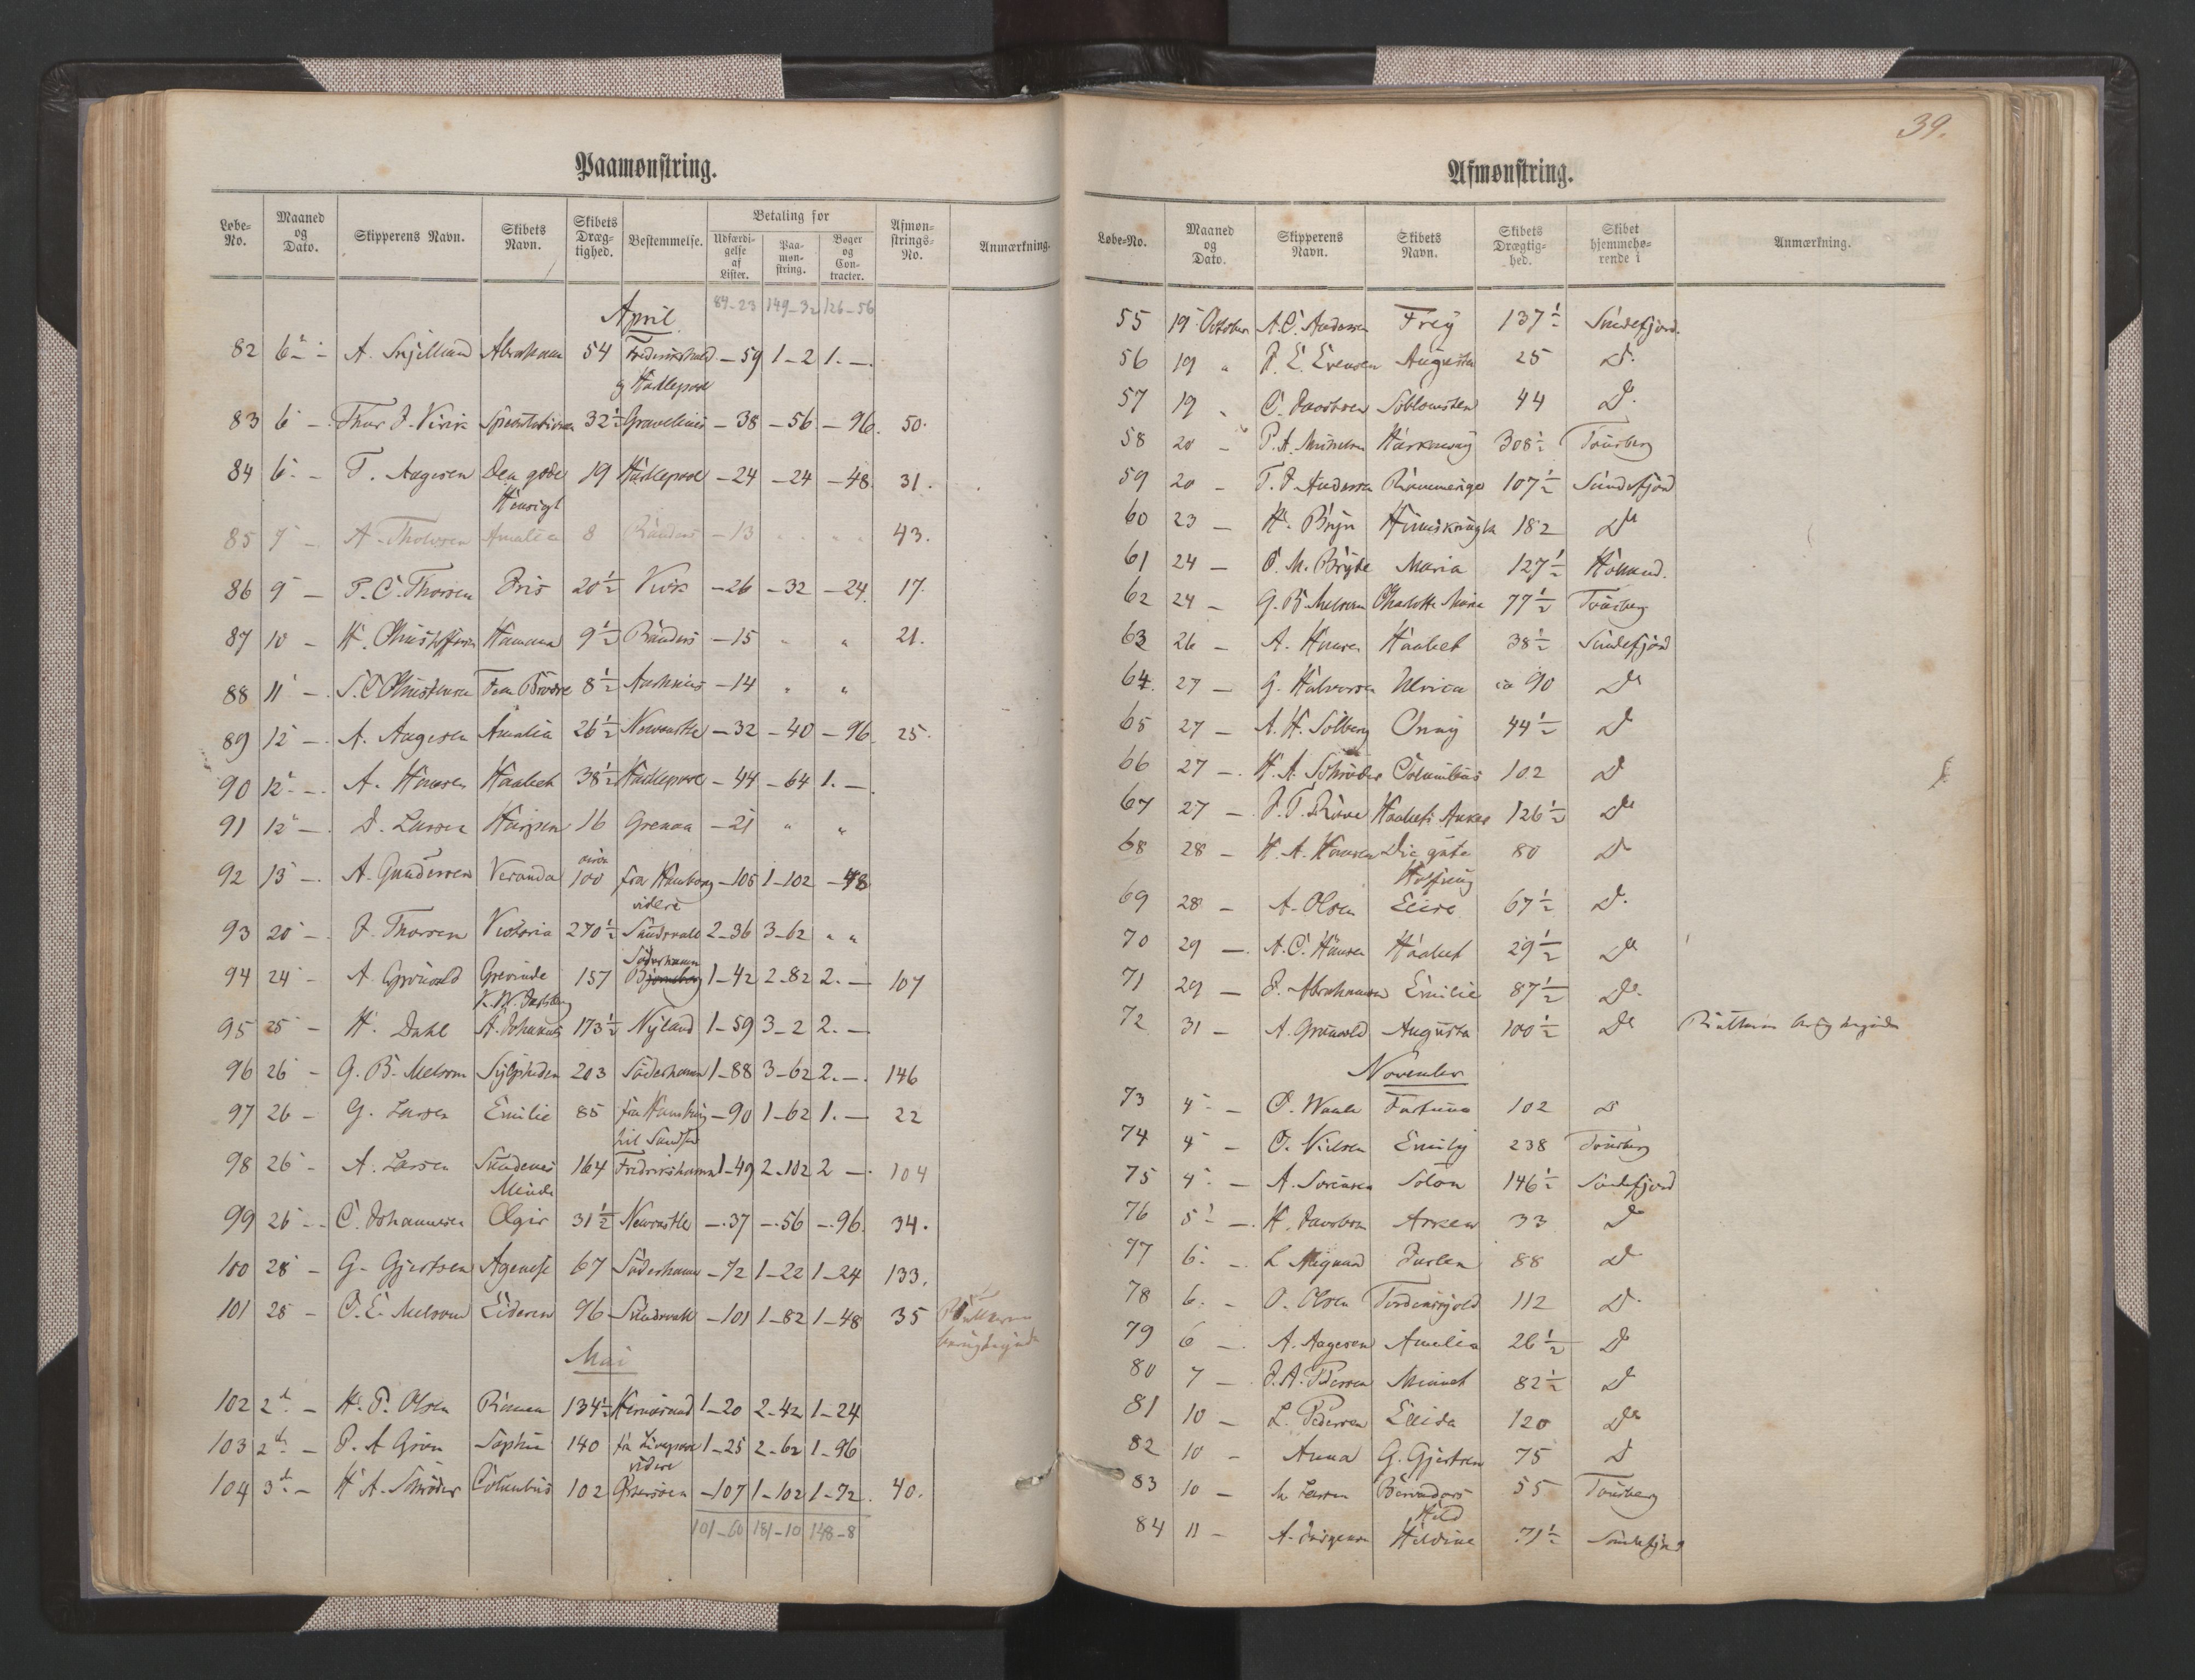 Paamønstring.
Løbe-No. Maaned og Dato. Skipperens Navn. Skibets Navn. Skibets Dræg-tighed. Bestemmelse. Betaling for Udfærdi-gelse af Lister. Paa-møn-string. Bøger og Con-tracter. Afmøn-strings-No. Anmærkning.
84-23 149-32 126-56
April
82 6 - A. Abraham 54 Frederikshald - 59 1-2 1. -
og Hartlepool
83 6 - Thor J. Virik 32½ Gravelines - 38 - 56 - 96. 50.
84 6 - T. Aagesen Den gode 19 Hartlepool - 24 - 24 - 48 31.
Hensigt
85 7 - A. Amalia 8 Randers - 13 " " 43.
86 9 - P. C. Thorsen Iris 20½ - 26 - 32 - 24 17.
87 10 - H. Christoffersen 9½ Randers - 15 " " 21.
88 11 - S. C. Christensen Fem Brødre 8½ Aarhuus - 14 " "
89 12 - A. Aagesen Amalia 26½ Newcastle - 32 - 40 - 96. 25.
90 12 - A. Hansen Haabet 38½ Hartlepool - 44 - 64 1. -
91 12 - D. Larsen 16 Grenaa - 21 " "
92 13 - A. Gundersen Veranda circa 100 fra Hamborg - 105 1-102 - 48
videre
93 20 - J. Thorsen Victoria 270½ Sundsvall 2-36 3-62 " "
Söderhamn
94 24 - A. Grønvold Grevinde 157 Bjørneborg 1-42 2-82 2. - 107
95 25 - H. Dahl St. Johannes 173½ Nyland 1-59 3-2 2. -
96 26 - G. B. Melsom Sylphiden 203 Söderhamn 1-88 3-62 2. - 146
97 26 - G. Larsen Emilie 85 fra Hamburg - 90 1-62 1. - 22
98 26 - A. Larsen Sandenes 164 Fredrikshamn 1-49 2-102 2 - 104
Minde
99 26 - C. Johannesen Ægir 31½ Newcastle - 37 - 56 - 96. 34.
100 28 - G. Gjertsen Agenese 67 Söderhamn - 72 1-22 1-24 133.
101 28 - C. E. Melsom Lideren 96 Sundsvall - 101 1-82 1-48 35
Mai
102 2 - H. P. Olsen 134½ Hernøsand 1-20 2-42 1-24
103 2 - P. A Grøn Sophie 140 fra Liverpool 1-25 2-62 1-96
videre
104 3 - H A. Schrøder Columbus 102 - 107 1-102 1-72. 40.
101-60 181-10 148-8
39.
Afmønstring.
Løbe-No. Maaned og Dato. Skipperens Navn. Skibets Navn. Skibets Drægtig-hed. Skibet hjemmehø-rende i Anmærkning.
55 19 October A. C. Andersen Frey 137½ Sandefjord.
56 19 " P. E. Evensen Augusta 25 Do
57 19 " C. Jacobsen Søblomsten 44 Do
58 20 - P. A. 308½ Tønsberg
59 20 - T. J. Andersen 107½ Sandefjord
60 23 - H. Bryn Heimskringla 182 Do
61 24 - O. M. Bryde Maria 127½
62 24 - G. B. Melsom Charlotte Marie 77½ Tønsberg
63 26 - A. Hansen Haabet 38½ Sandefjord
64. 27 - G. Halvorsen Ulrica ca 90 Do
65 27 - A. H. Solberg Onny 44½ Do
66 27 - H. A. Schrøder Columbus 102 Do
67 27 - J. T. Röver Haabets Anker 126½ Do
68 28 - H. A. Hansen Die gute 80 Do
Hoffnung
69 28 - A. Olsen Elise 67½ Do
70 29 - A. C. Hansen Haabet 29½ Do
71 29 - J. Abrahamsen Emilie 87½ Do
72 31 - A. Grønvold Augusta 100½ Do
November
73 4 - O. Waale Fortuna 102 Do
74 4 - O. Nielsen Emily 238 Tønsberg
75 4 - A. Sørensen Solon 146½ Sandefjord
76 5 - H. Jacobsen Arken 33 Do
77 6 - L. 88 Do
78 6 - O. Olsen Tordenskjold 112 Do
79 6 - A. Aagesen Amalia 26½ Do
80 7 - J. A. Pedersen Minnet 82½ Do
81 10 - L. Pedersen Ellida 120 Do
82 10 - Anna G. Gjertsen 75 Do
83 10 - Larsen 55 Tønsberg
84 11 - A. Jørgensen Heldine 71½ Sandefjord